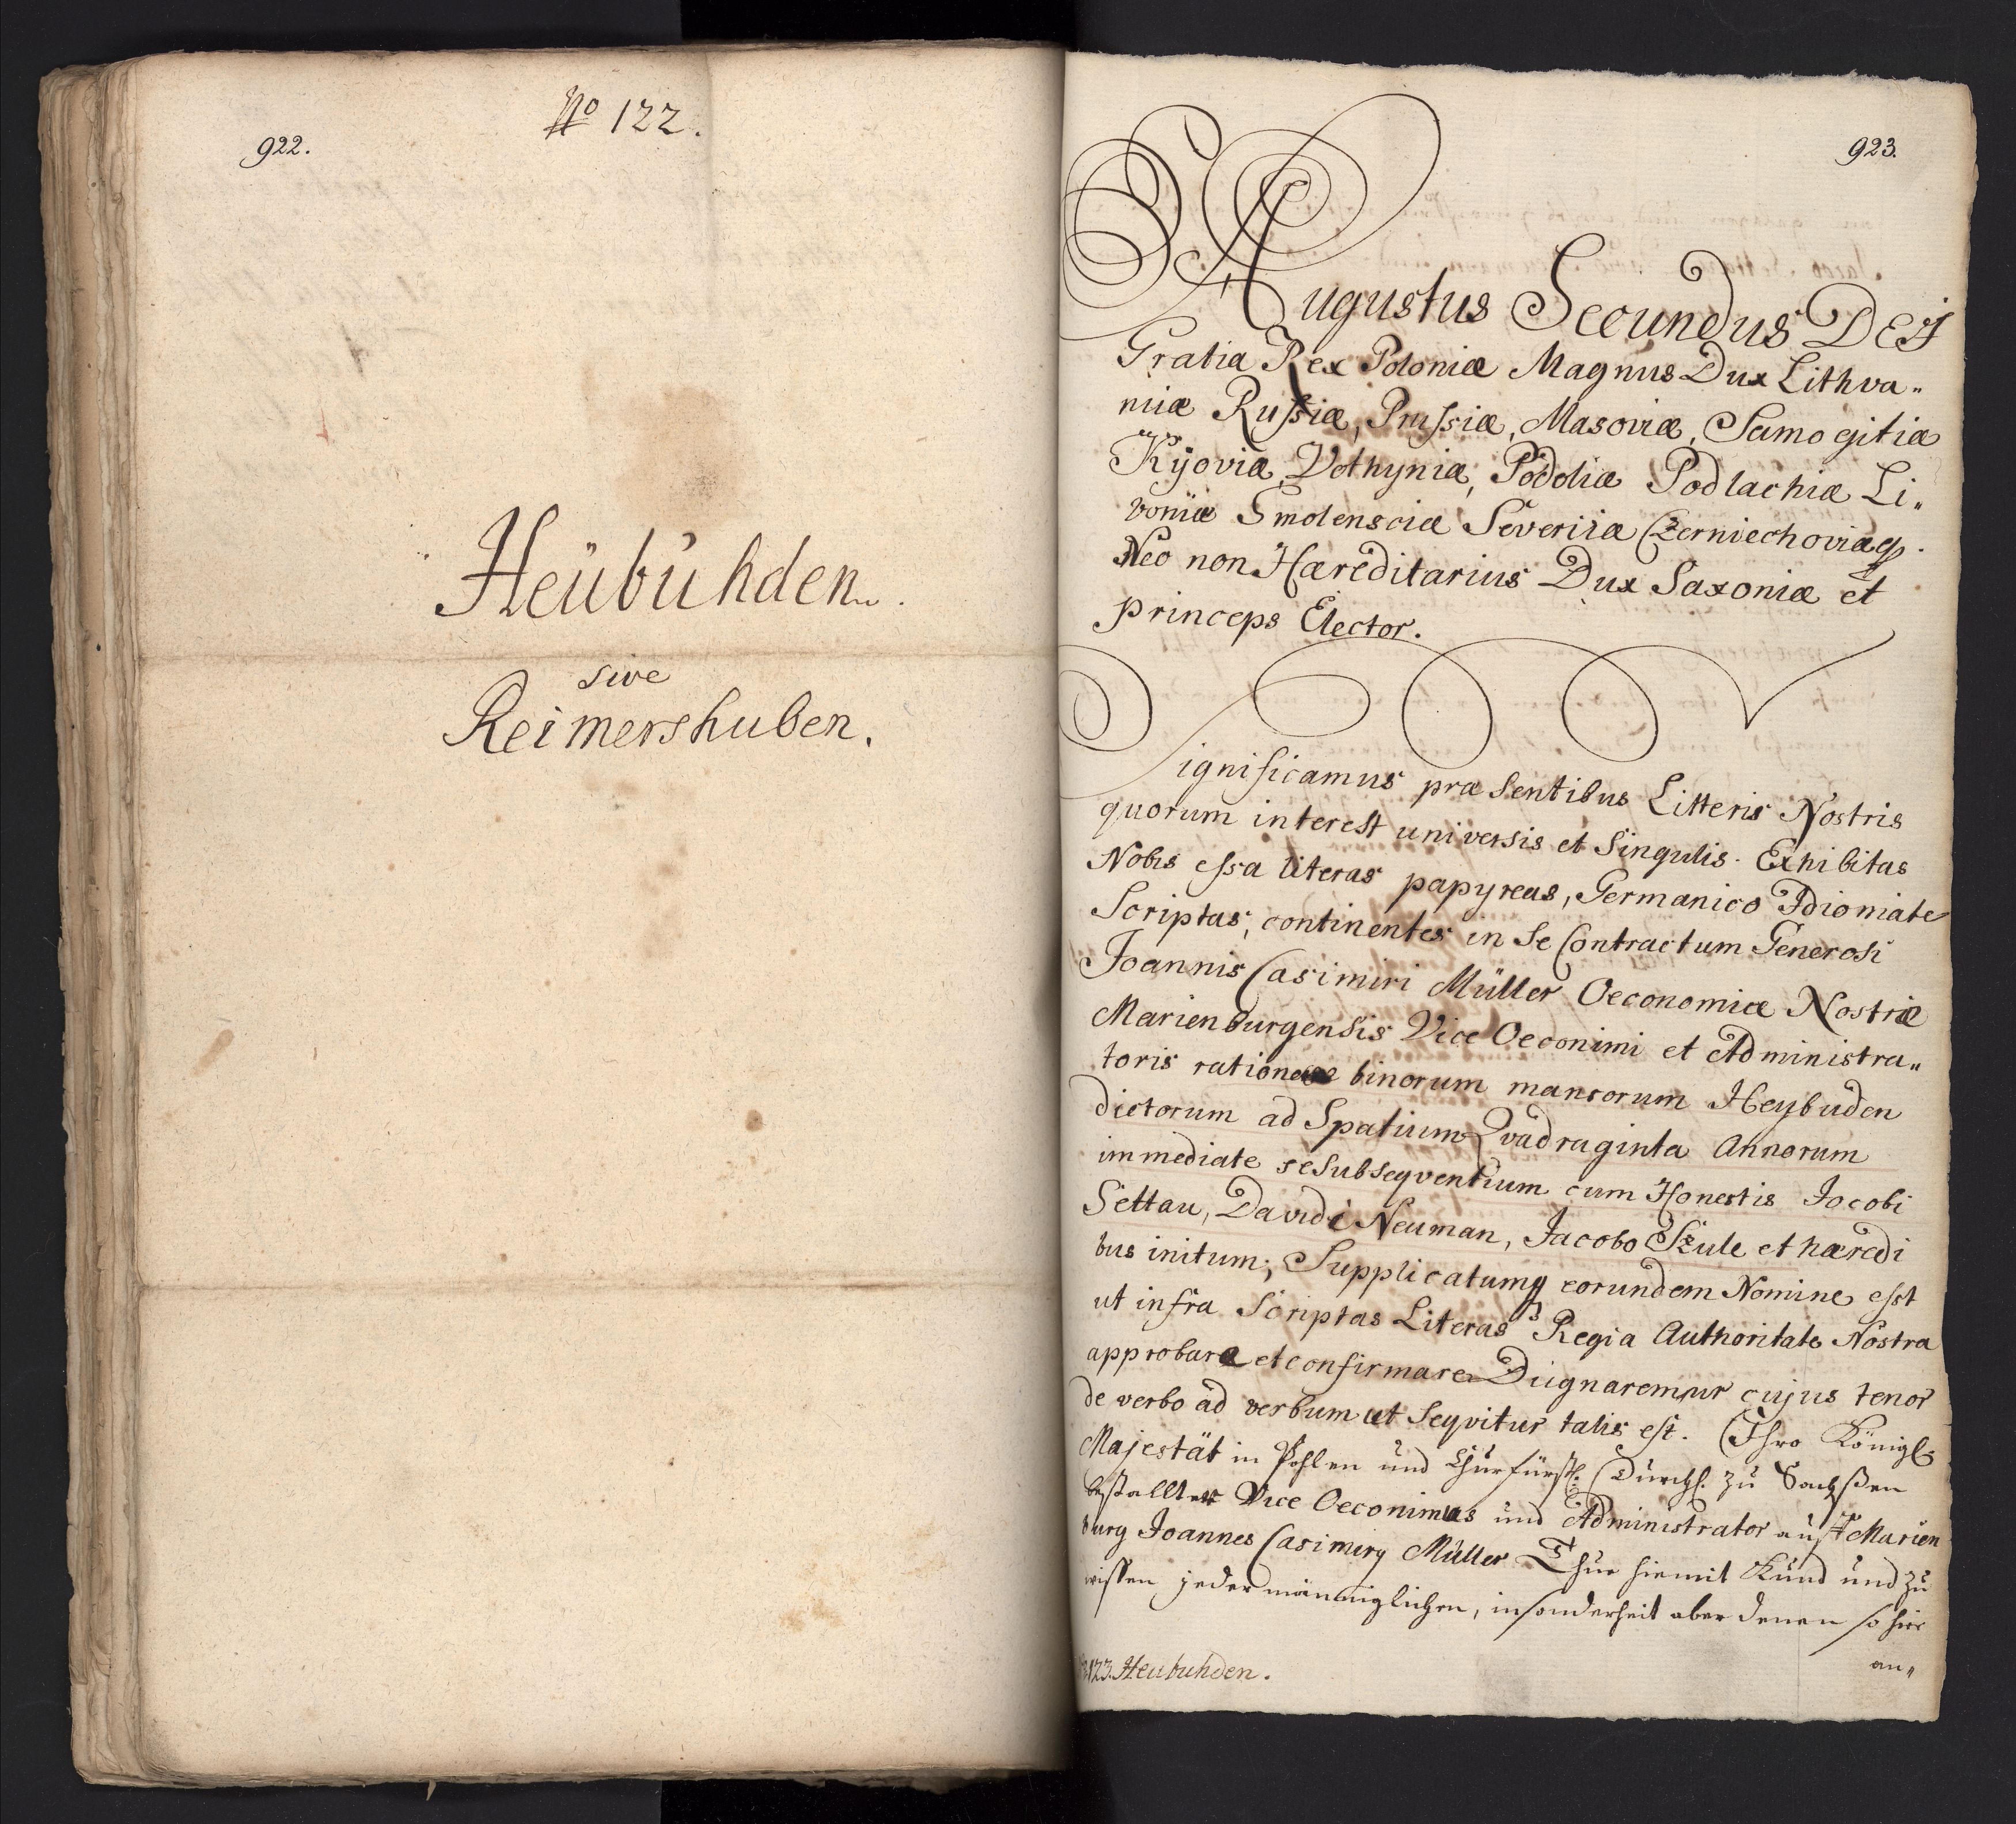 922.
No 122.
Heübuhden.
sive
Reimershuben.
923.
Augustus Secundus DEJ
Gratia Rex Poloniæ Magnus Dux Lithva„
niæ Russiæ, Prussiæ, Masoviæ, Samogitiæ
Kÿoviæ, Volhyniæ, Podoliæ Podlachiæ Li„
voniæ Smolensciæ Severiiæ Czerniechoviæq.
Nec non Hæreditarius Dux Saxoniæ et
princeps Elector.
Significamus præsentibus Litteris Nostris
quorum interest universis et Singulis. Exhibitas
Nobis essa literas papyreas, Germanico Idiomate
Scriptas, continentes in se Contractum Generosi
Joannis Casimiri Müller Oeconomiæ Nostræ
Marienburgensis Vice Oeconimi et Administra„
toris ratione binorum mansorum Heybuden
dictorum ad Spatium Qvadraginta Annorum
immediate se subseqventium cum Honestis Jacobi
Settau, Davidi Neuman, Jacobo Szule et hæredi
bus initum; Supplicatumq eorundem Nomine esst
ut infra Scriptas Literas Regia Authoritate Nostra
approbare et confirmare Diignaremur cujus tenor
de verbo ad verbum ut seqvitur talis est. Ihro Königl.
Majestät in Pohlen und Churfürstl. Durchl. zu Sachßen
bestallter Vice Oeconimus und Administrator auff Marien
burg Joannes Casimiry Müller Thue hiemit Kund und zu
wissen jedermänniglichen, insonderheit aber denen so hier
an„
123. Heubuhden.